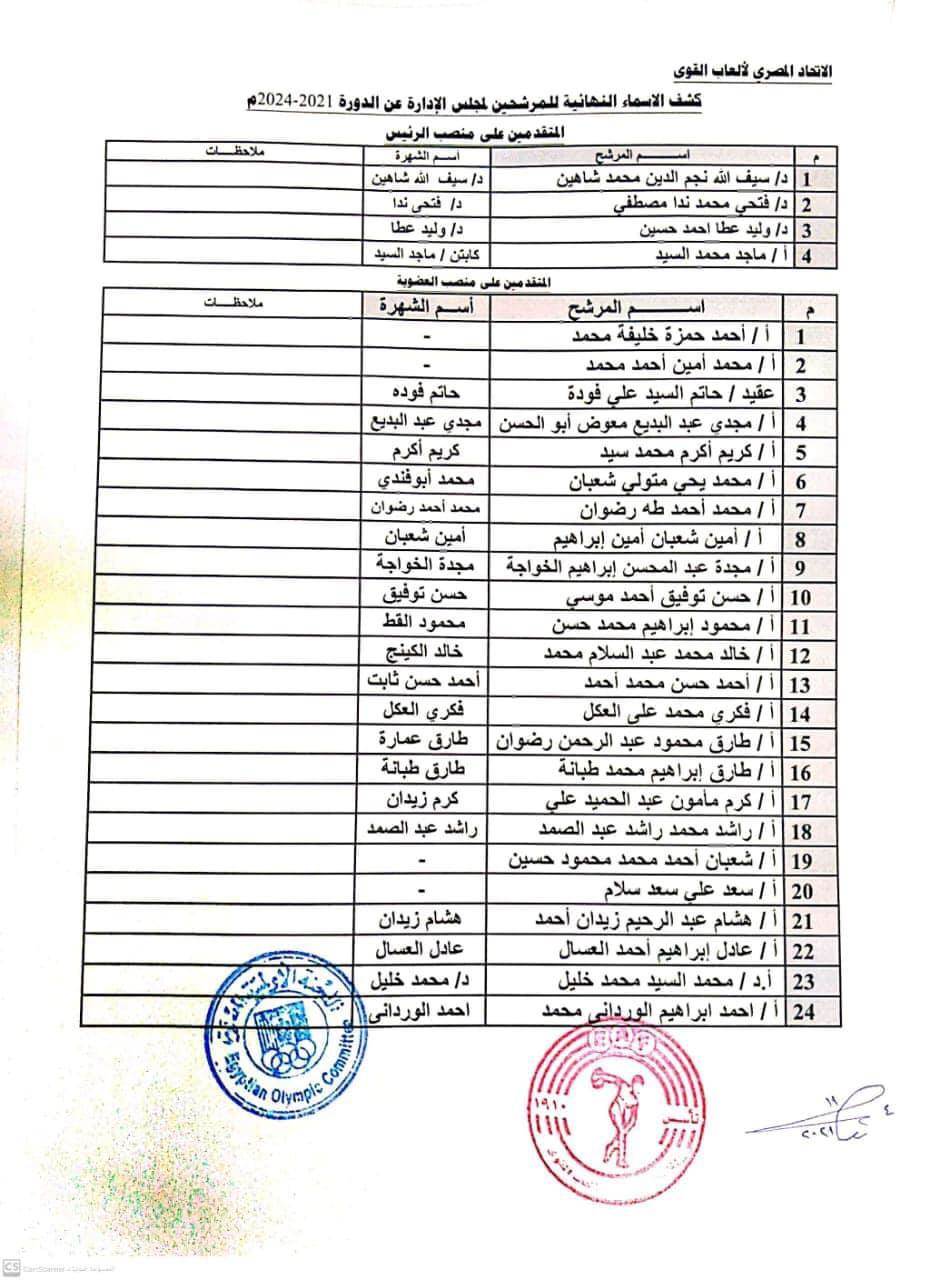 الاتحاد المصري لألعاب القوى
كشف الاسماء النهائية للمرشحين لمجلس الإدارة عن الدورة 2021-2024م
المتقدمين على منصب الرئيس
م اســـــم المرشح أسـم الشهرة ملاحظـــات
1 د/ سيف الله نجم الدين محمد شاهين د/ سيف الله شاهين
2 د/ فتحي محمد ندا مصطفي د/ فتحى ندا
3 د/ وليد عطا احمد حسين د/ وليد عطا
4 أ / ماجد محمد السيد كابتن / ماجد السيد
المتقدمين على منصب العضوية
م اســـــم المرشح أسـم الشهرة ملاحظـــات
1 أ / أحمد حمزة خليفة محمد -
2 أ / محمد أمين أحمد محمد -
3 عقيد / حاتم السيد علي فودة حاتم فوده
4 أ / مجدي عبد البديع معوض أبو الحسن مجدي عبد البديع
5 أ / كريم أكرم محمد سيد كريم أكرم
6 أ / محمد يحي متولي شعبان محمد أبوفندي
7 أ / محمد أحمد طه رضوان محمد أحمد رضوان
8 أ / أمين شعبان أمين إبراهيم أمين شعبان
9 أ / مجدة عبد المحسن إبراهيم الخواجة مجدة الخواجة
10 أ / حسن توفيق أحمد موسي حسن توفيق
11 أ / محمود إبراهيم محمد حسن محمود القط
12 أ / خالد محمد عبد السلام محمد خالد الكينج
13 أ / أحمد حسن محمد أحمد أحمد حسن ثابت
14 أ / فكري محمد على العكل فكري العكل
15 أ / طارق محمود عبد الرحمن رضوان طارق عمارة
16 أ / طارق إبراهيم محمد طبانة طارق طبانة
17 أ / كرم مأمون عبد الحميد علي كرم زيدان
18 أ / راشد محمد راشد عبد الصمد راشد عبد الصمد
19 أ / شعبان أحمد محمد محمود حسين -
20 أ / سعد علي سعد سلام -
21 أ / هشام عبد الرحيم زيدان أحمد هشام زيدان
22 أ / عادل إبراهيم أحمد العسال عادل العسال
23 أ.د / محمد السيد محمد خليل د/ محمد خليل
24 أ / احمد ابراهيم الوردانى محمد احمد الوردانى
Egyptian Olympic Committee
تأسس ١٩١٠
٢٠٢١
CS CamScanner